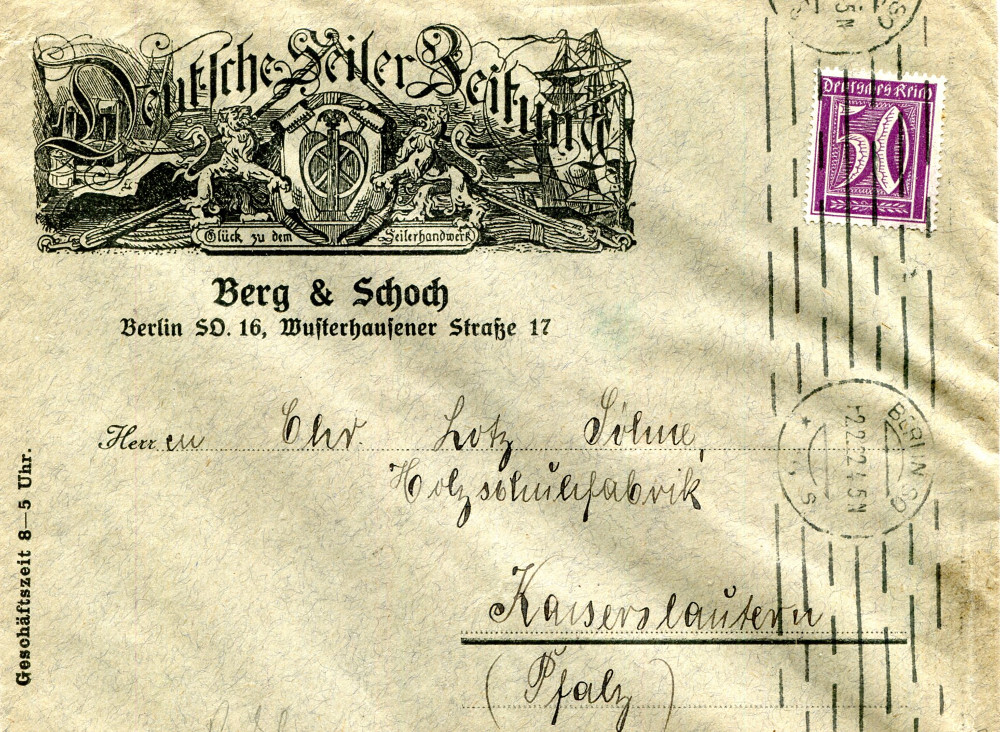 Deutsche Seiler Zeitung
Glück zu dem Seilerhandwerk
Berg & Schoch
Berlin SO. 16, Wusterhausener Straße 17
Deutsches Reich
50
Herren Chr. Lotz Söhne,
Holzschuhfabrik
Kaiserslautern
(Pfalz)
Geschäftszeit 8–5 Uhr.
BERLIN SO
-2.2.22.4-5N